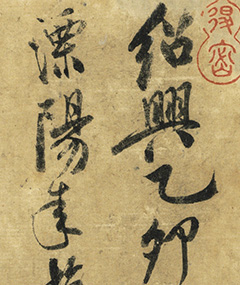 紹興乙卯
溧陽来